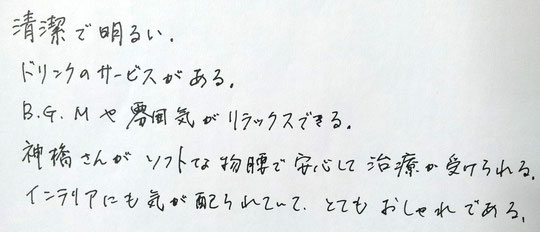 清潔で明るい.
ドリンクのサービスがある.
B.G.Mや雰囲気がリラックスできる.
神橋さんがソフトな物腰で安心して治療が受けられる.
インテリアにも気が配られていて.とてもおしゃれである.